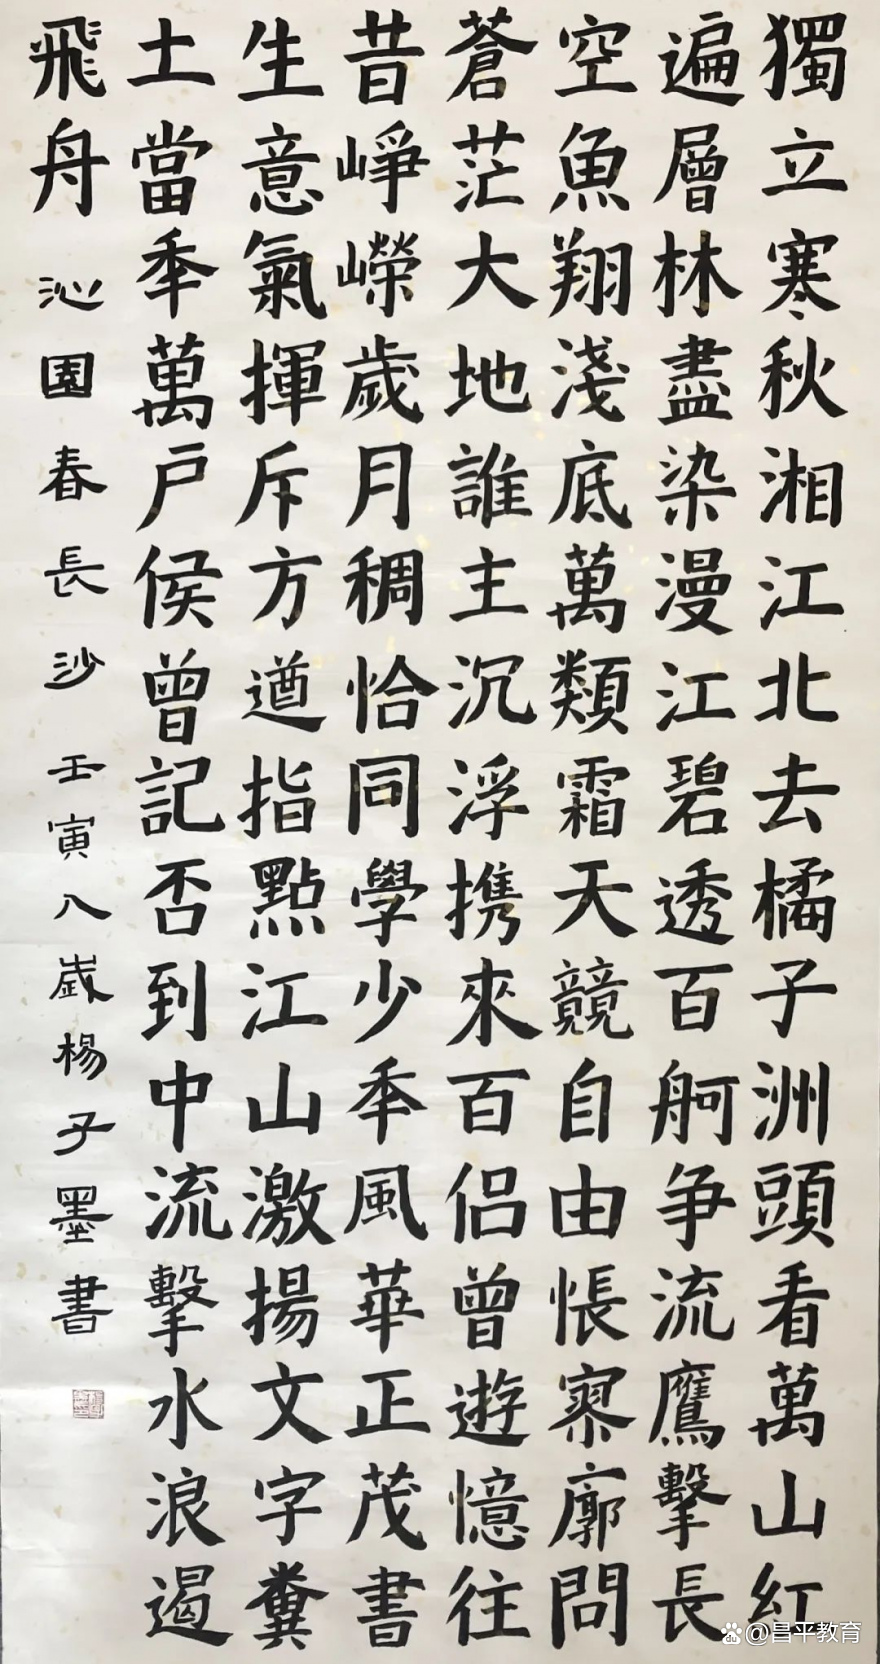 獨立寒秋湘江北去橘子洲頭看萬山紅
遍層林盡染漫江碧透百舸争流鷹擊長
空魚翔淺底萬類霜天競自由悵寥廓問
蒼茫大地誰主沉浮携來百侣曾遊憶往
昔崢嶸歲月稠恰同學少年風華正茂書
生意氣揮斥方遒指點江山激揚文字糞
土當年萬户侯曾記否到中流擊水浪遏
飛舟 沁園春長沙 壬寅八歲楊子墨書
@昌平教育